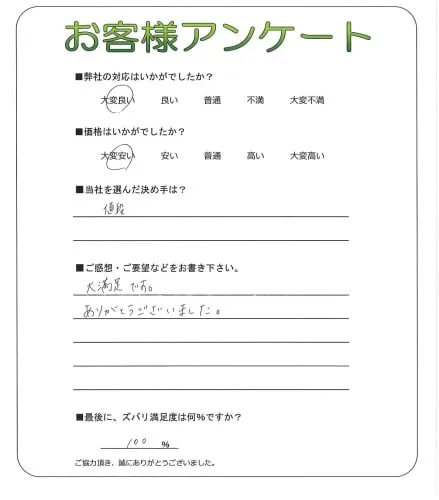 お客様アンケート
■弊社の対応はいかがでしたか？
大変良い 良い 普通 不満 大変不満
■価格はいかがでしたか？
大変安い 安い 普通 高い 大変高い
■当社を選んだ決め手は？
値段
■ご感想・ご要望などをお書き下さい。
大満足です。
ありがとうございました。
■最後に、ズバリ満足度は何％ですか？
100 ％
ご協力頂き、誠にありがとうございました。